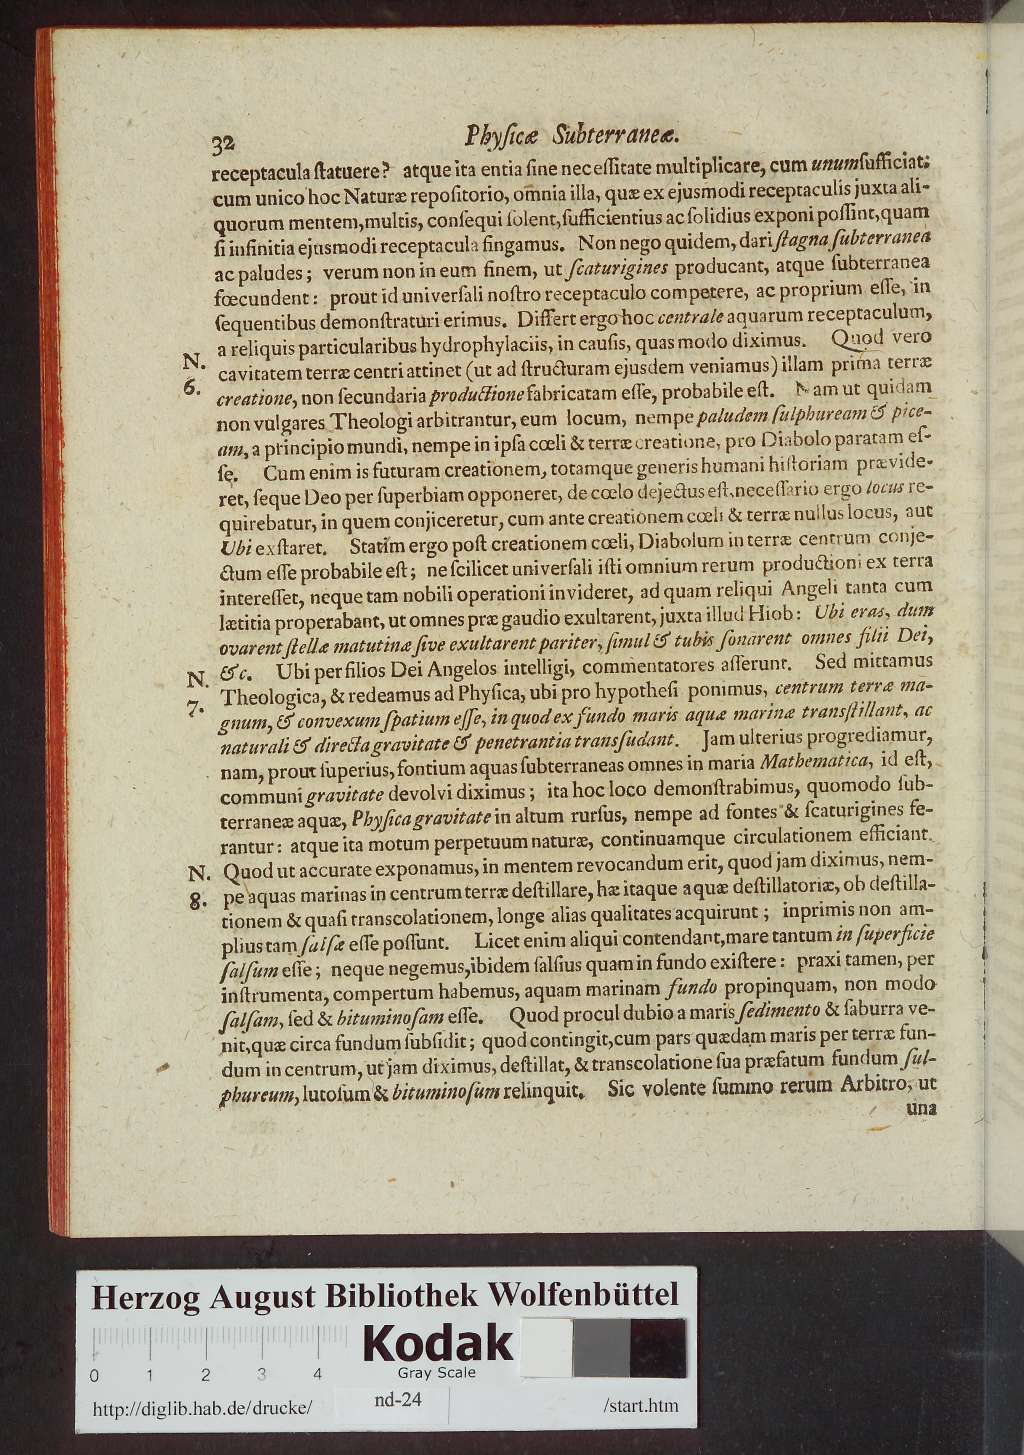 32 Phyſicæ Subterraneæ.
receptacula ſtatuere? atque ita entia ſine neceſſitate multiplicare, cum unum ſufficiat:
cum unico hoc Naturæ repoſitorio, omnia illa, quæ ex ejusmodi receptaculis juxta ali-
quorum mentem, multis, conſequi ſolent, ſufficientius ac ſolidius exponi poſſint, quam
ſi infinitia ejusmodi receptacula fingamus. Non nego quidem, dari ſtagna ſubterranea
ac paludes; verum non in eum finem, ut ſcaturigines producant, atque ſubterranea
fœcundent: prout id univerſali noſtro receptaculo competere, ac proprium eſſe, in
ſequentibus demonſtraturi erimus. Differt ergo hoc centrale aquarum receptaculum,
a reliquis particularibus hydrophylaciis, in cauſis, quas modo diximus. Quod vero
N.
6.
cavitatem terræ centri attinet (ut ad ſtructuram ejusdem veniamus) illam prima terræ
creatione, non ſecundaria productione fabricatam eſſe, probabile eſt. Nam ut quidam
non vulgares Theologi arbitrantur, eum locum, nempe paludem ſulphuream & pice-
am, a principio mundi, nempe in ipſa cœli & terræ creatione, pro Diabolo paratam eſ-
ſe. Cum enim is futuram creationem, totamque generis humani hiſtoriam prævide-
ret, ſeque Deo per ſuperbiam opponeret, de cœlo dejectus eſt, neceſſario ergo locus re-
quirebatur, in quem conjiceretur, cum ante creationem cœli & terræ nullus locus, aut
Ubi exſtaret. Statim ergo poſt creationem cœli, Diabolum in terræ centrum conje-
ctum eſſe probabile eſt; ne ſcilicet univerſali iſti omnium rerum productioni ex terra
intereſſet, neque tam nobili operationi invideret, ad quam reliqui Angeli tanta cum
lætitia properabant, ut omnes præ gaudio exultarent, juxta illud Hiob: Ubi eras, dum
ovarent ſtellæ matutinæ ſive exultarent pariter, ſimul & tubis ſonarent omnes filii Dei,
&c. Ubi per filios Dei Angelos intelligi, commentatores aſſerunt. Sed mittamus
N.
7.
Theologica, & redeamus ad Phyſica, ubi pro hypotheſi ponimus, centrum terræ ma-
gnum, & convexum ſpatium eſſe, in quod ex fundo maris aquæ marinæ transſtillant, ac
naturali & directa gravitate & penetrantia transſudant. Jam ulterius progrediamur,
nam, prout ſuperius, fontium aquas ſubterraneas omnes in maria Mathematica, id eſt,
communi gravitate devolvi diximus; ita hoc loco demonſtrabimus, quomodo ſub-
terraneæ aquæ, Phyſica gravitate in altum rurſus, nempe ad fontes & ſcaturigines fe-
rantur: atque ita motum perpetuum naturæ, continuamque circulationem efficiant.
N.
8.
Quod ut accurate exponamus, in mentem revocandum erit, quod jam diximus, nem-
pe aquas marinas in centrum terræ deſtillare, hæ itaque aquæ deſtillatoriæ, ob deſtilla-
tionem & quaſi transcolationem, longe alias qualitates acquirunt; inprimis non am-
plius tam ſalſæ eſſe poſſunt. Licet enim aliqui contendant, mare tantum in ſuperficie
ſalſum eſſe; neque negemus, ibidem ſalſius quam in fundo exiſtere: praxi tamen, per
inſtrumenta, compertum habemus, aquam marinam fundo propinquam, non modo
ſalſam, ſed & bituminoſam eſſe. Quod procul dubio a maris ſedimento & ſaburra ve-
nit, quæ circa fundum ſubſidit; quod contingit, cum pars quædam maris per terræ fun-
dum in centrum, ut jam diximus, deſtillat, & transcolatione ſua præfatum fundum ſul-
phureum, lutoſum & bituminoſum relinquit. Sic volente ſummo rerum Arbitro, ut
una
Herzog August Bibliothek Wolfenbüttel
Kodak
Gray Scale
0 1 2 3 4
http://diglib.hab.de/drucke/ nd-24 /start.htm